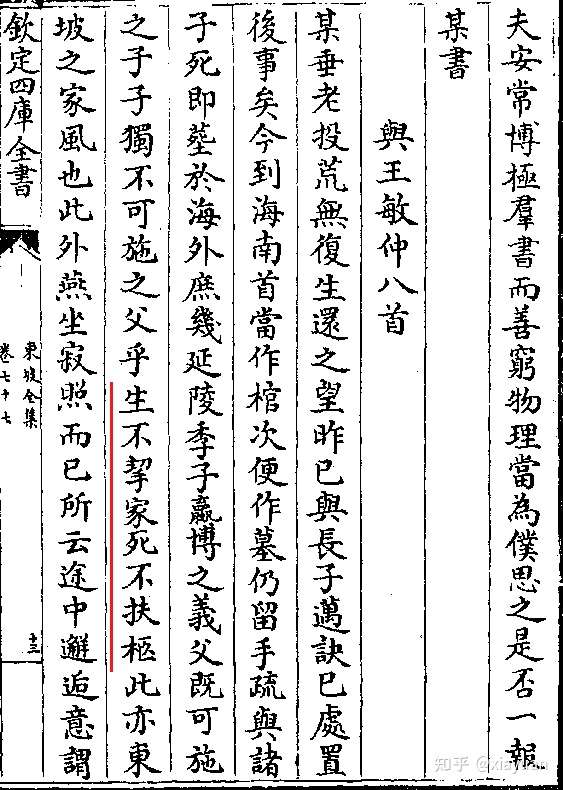 夫安常博極羣書而善窮物理當為僕思之是否一報
某書
與王敏仲八首
某垂老投荒無復生還之望昨已與長子邁訣已處置
後事矣今到海南首當作棺次便作墓仍留手疏與諸
子死即塟於海外庶幾延陵季子嬴博之義父既可施
之子子獨不可施之父乎生不挈家死不扶柩此亦東
坡之家風也此外燕坐寂照而已所云途中邂逅意謂
欽定四庫全書
東坡全集
卷七十七
十三
知乎 @xiayuan